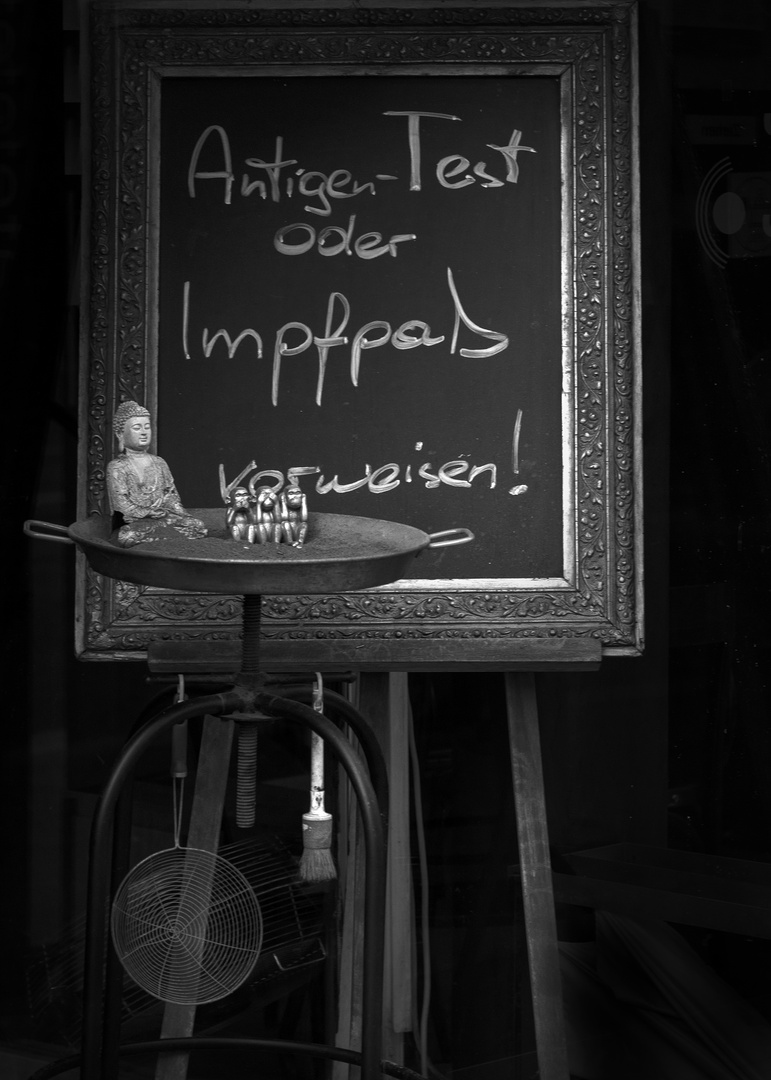 Antigen-Test
oder
Impfpaß
vorweisen!